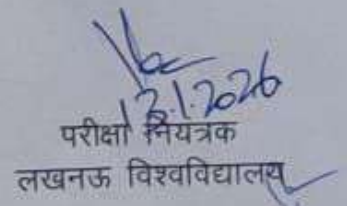 13.1.2026
परीक्षा नियंत्रक
लखनऊ विश्वविद्यालय